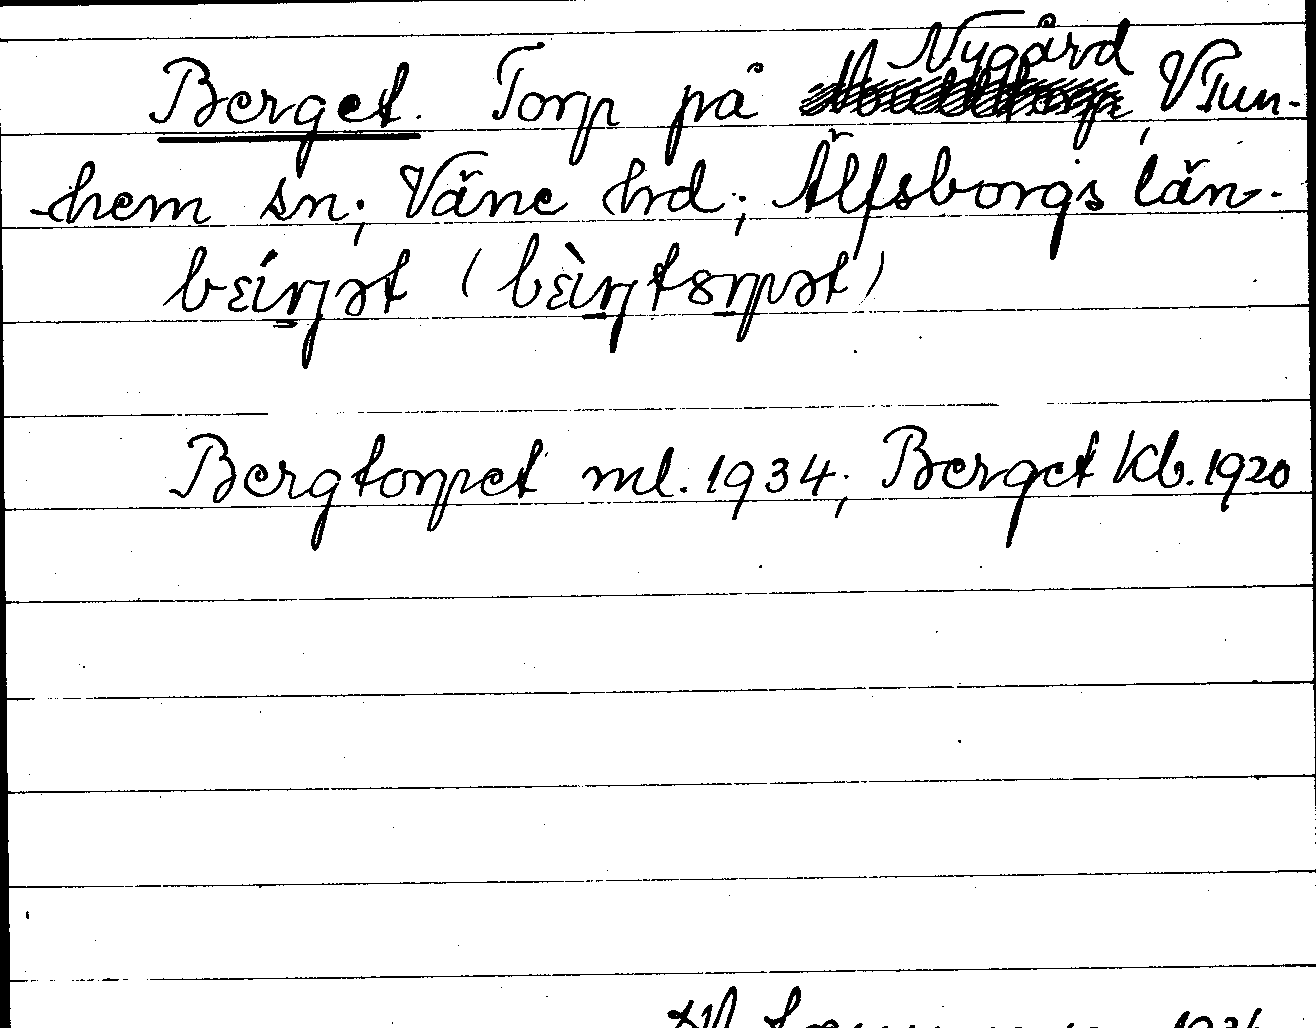 Berget. Torp på Nygård, V Tun-
hem sn; Väne hd; Älfsborgs län.
bɛíŋət (bɛ̀iŋtɷrpət)
Bergtorpet ml. 1934; Berget Kb. 1920